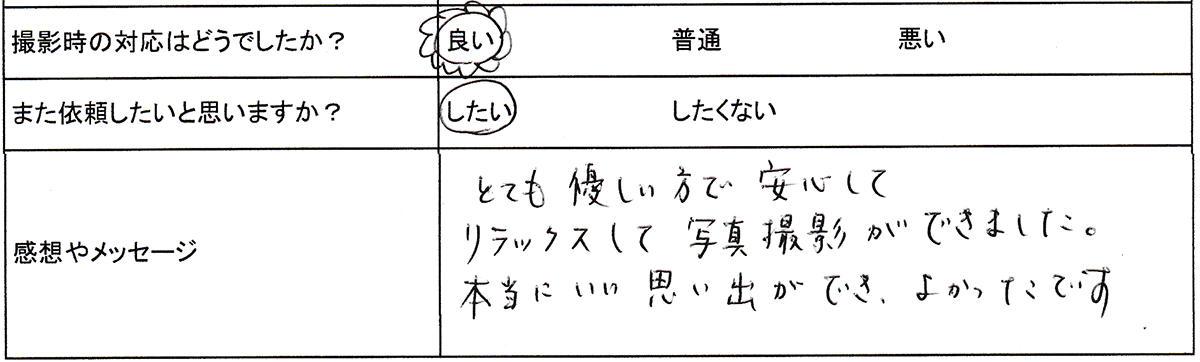 撮影時の対応はどうでしたか？ 良い 普通 悪い
また依頼したいと思いますか？ したい したくない
感想やメッセージ
とても優しい方で安心して
リラックスして写真撮影ができました。
本当にいい思い出ができ、よかったです